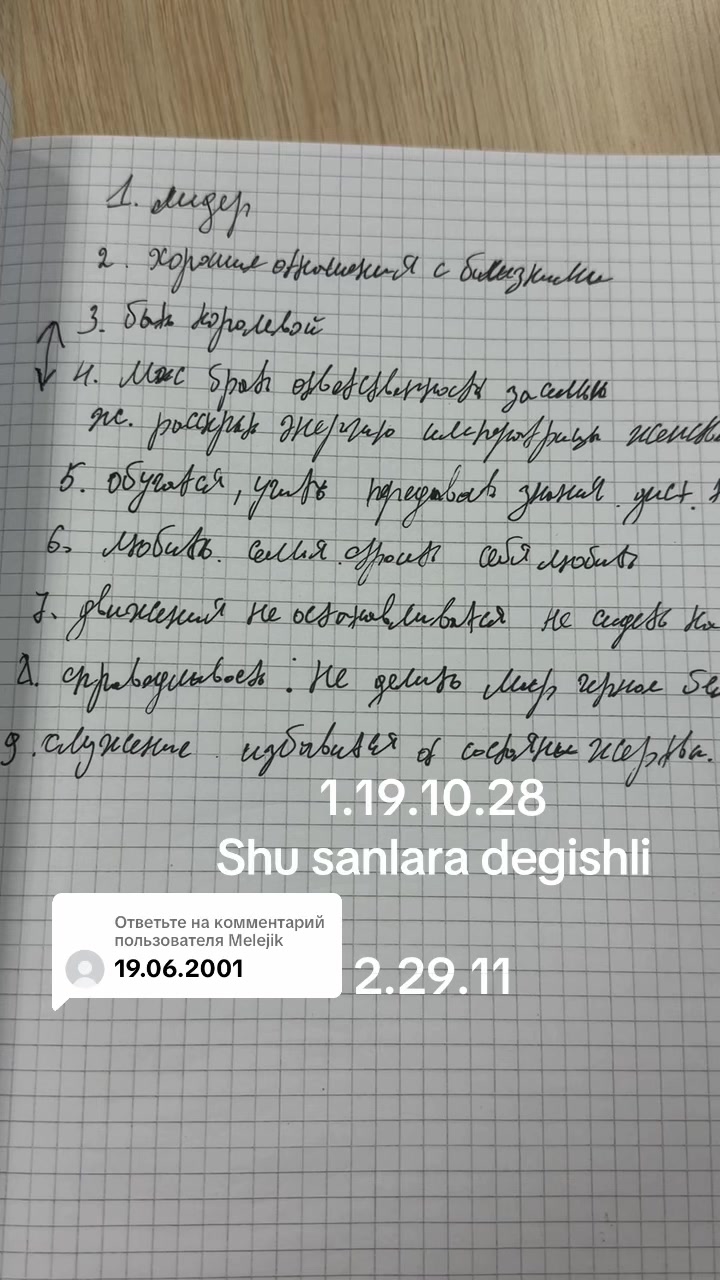 1. лидер
2. хорошие отношения с близкими
3. быть королевой
4. Муж брать ответственность за семью
ж. раскрыт энергию императрицы женск
5. обучатся, учить передовать знания. дист.
6. любить. семия. строить себя любить
7. движения не останавливатся не сидеть на
8. справодлывость: Не делить мир черное бе
9. служение избывится от состяны жертвы.
1.19.10.28
Shu sanlara degishli
Ответьте на комментарий
пользователя Melejik
19.06.2001
2.29.11